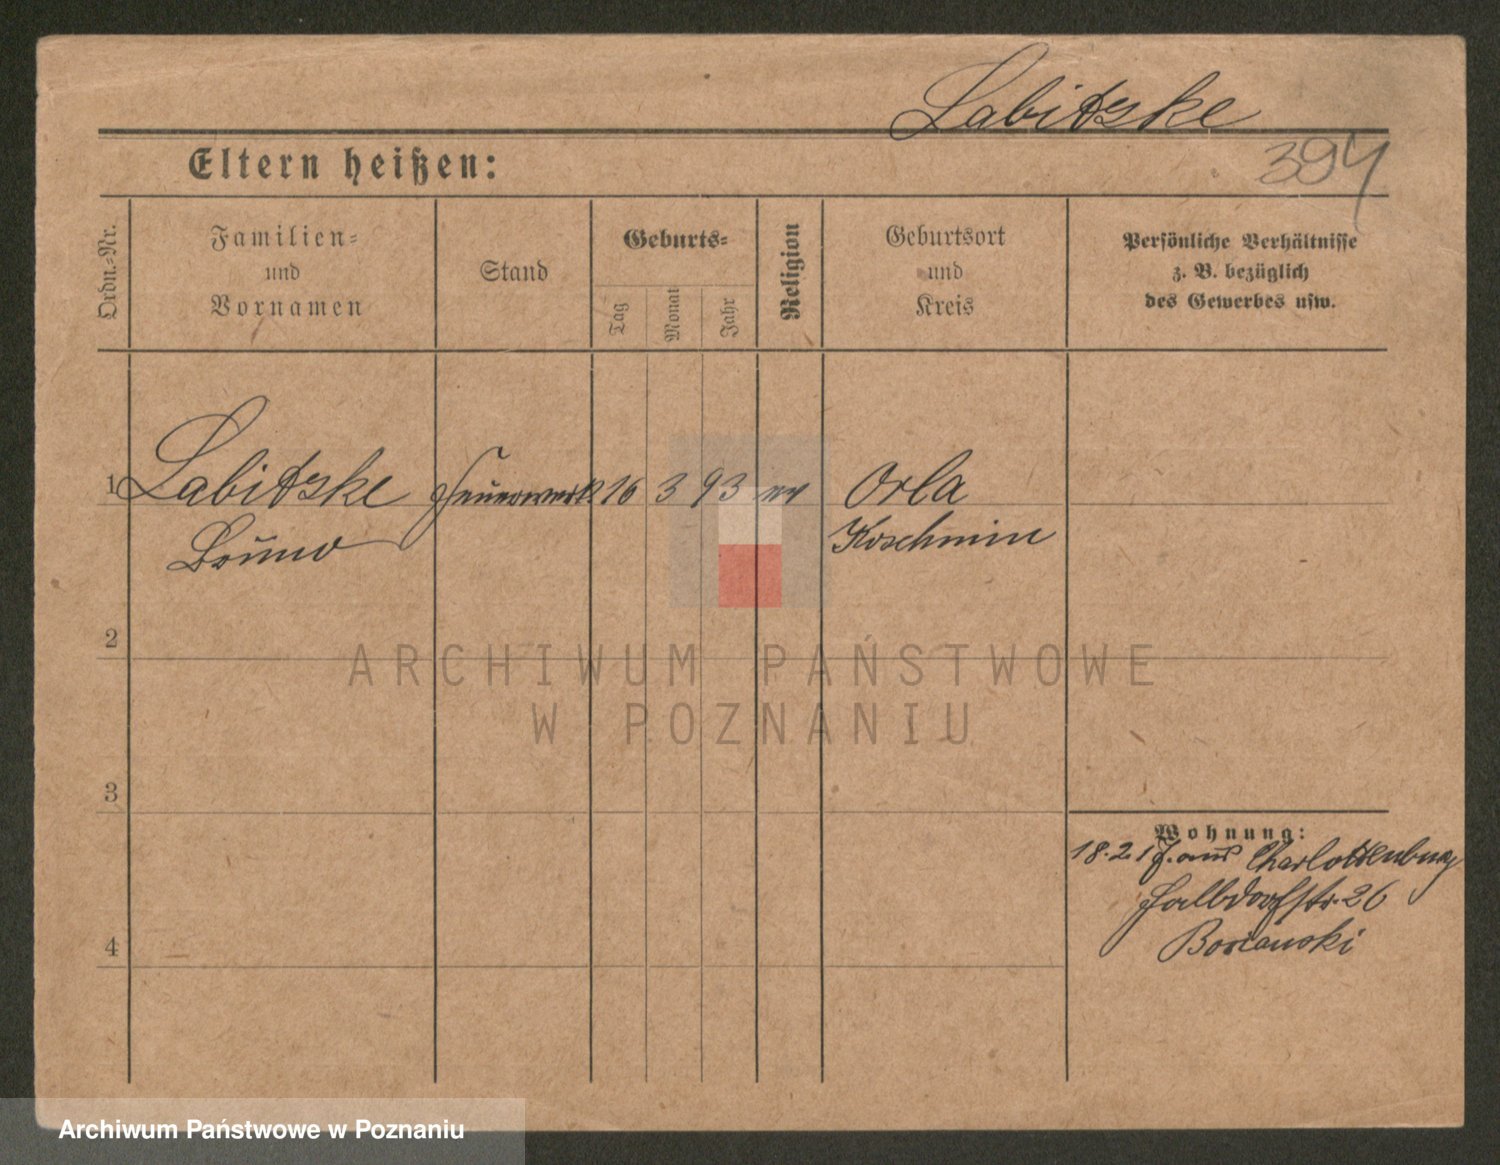 Labitzke
394
Eltern heißen:
Ordn.-Nr.
Familien-
und
Vornamen
Stand
Geburts-
Tag
Monat
Jahr
Religion
Geburtsort
und
Kreis
Persönliche Verhältnisse
z. B. bezüglich
des Gewerbes usw.
1 Labitzke Feuerwerk. 16 3 93 ev Orla
Bruno Koschmin
2
3
4
Wohnung:
18.2.17. aus Charlottenburg
str. 26
ARCHIWUM PAŃSTWOWE
W POZNANIU
Archiwum Państwowe w Poznaniu